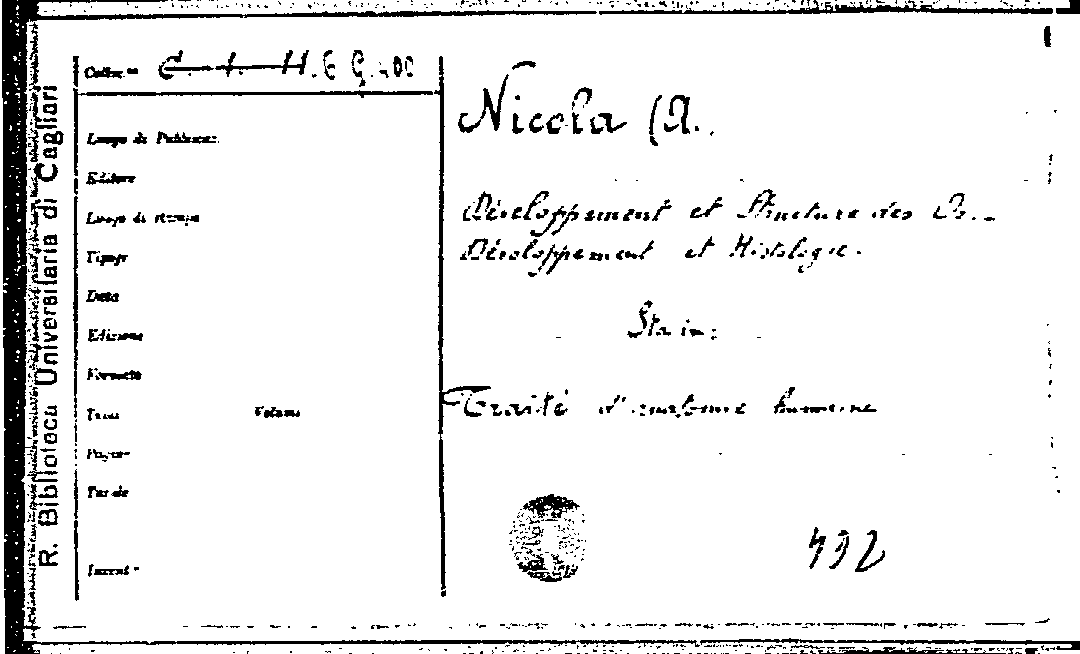 R. Biblioteca Universitaria di Cagliari
Colloc.ne C. 1. H. 6 G. 400
Nicola (A.
Luogo di Pubblicaz.
Editore
Luogo di stampa
Développement et Structure des Os.
Tipogr
Développement et Histologie.
Data
Edizione
Sta in:
Formato
Tomi Volume
Traité d'anatomie humaine
Pagine
Tavole
Invent.
492